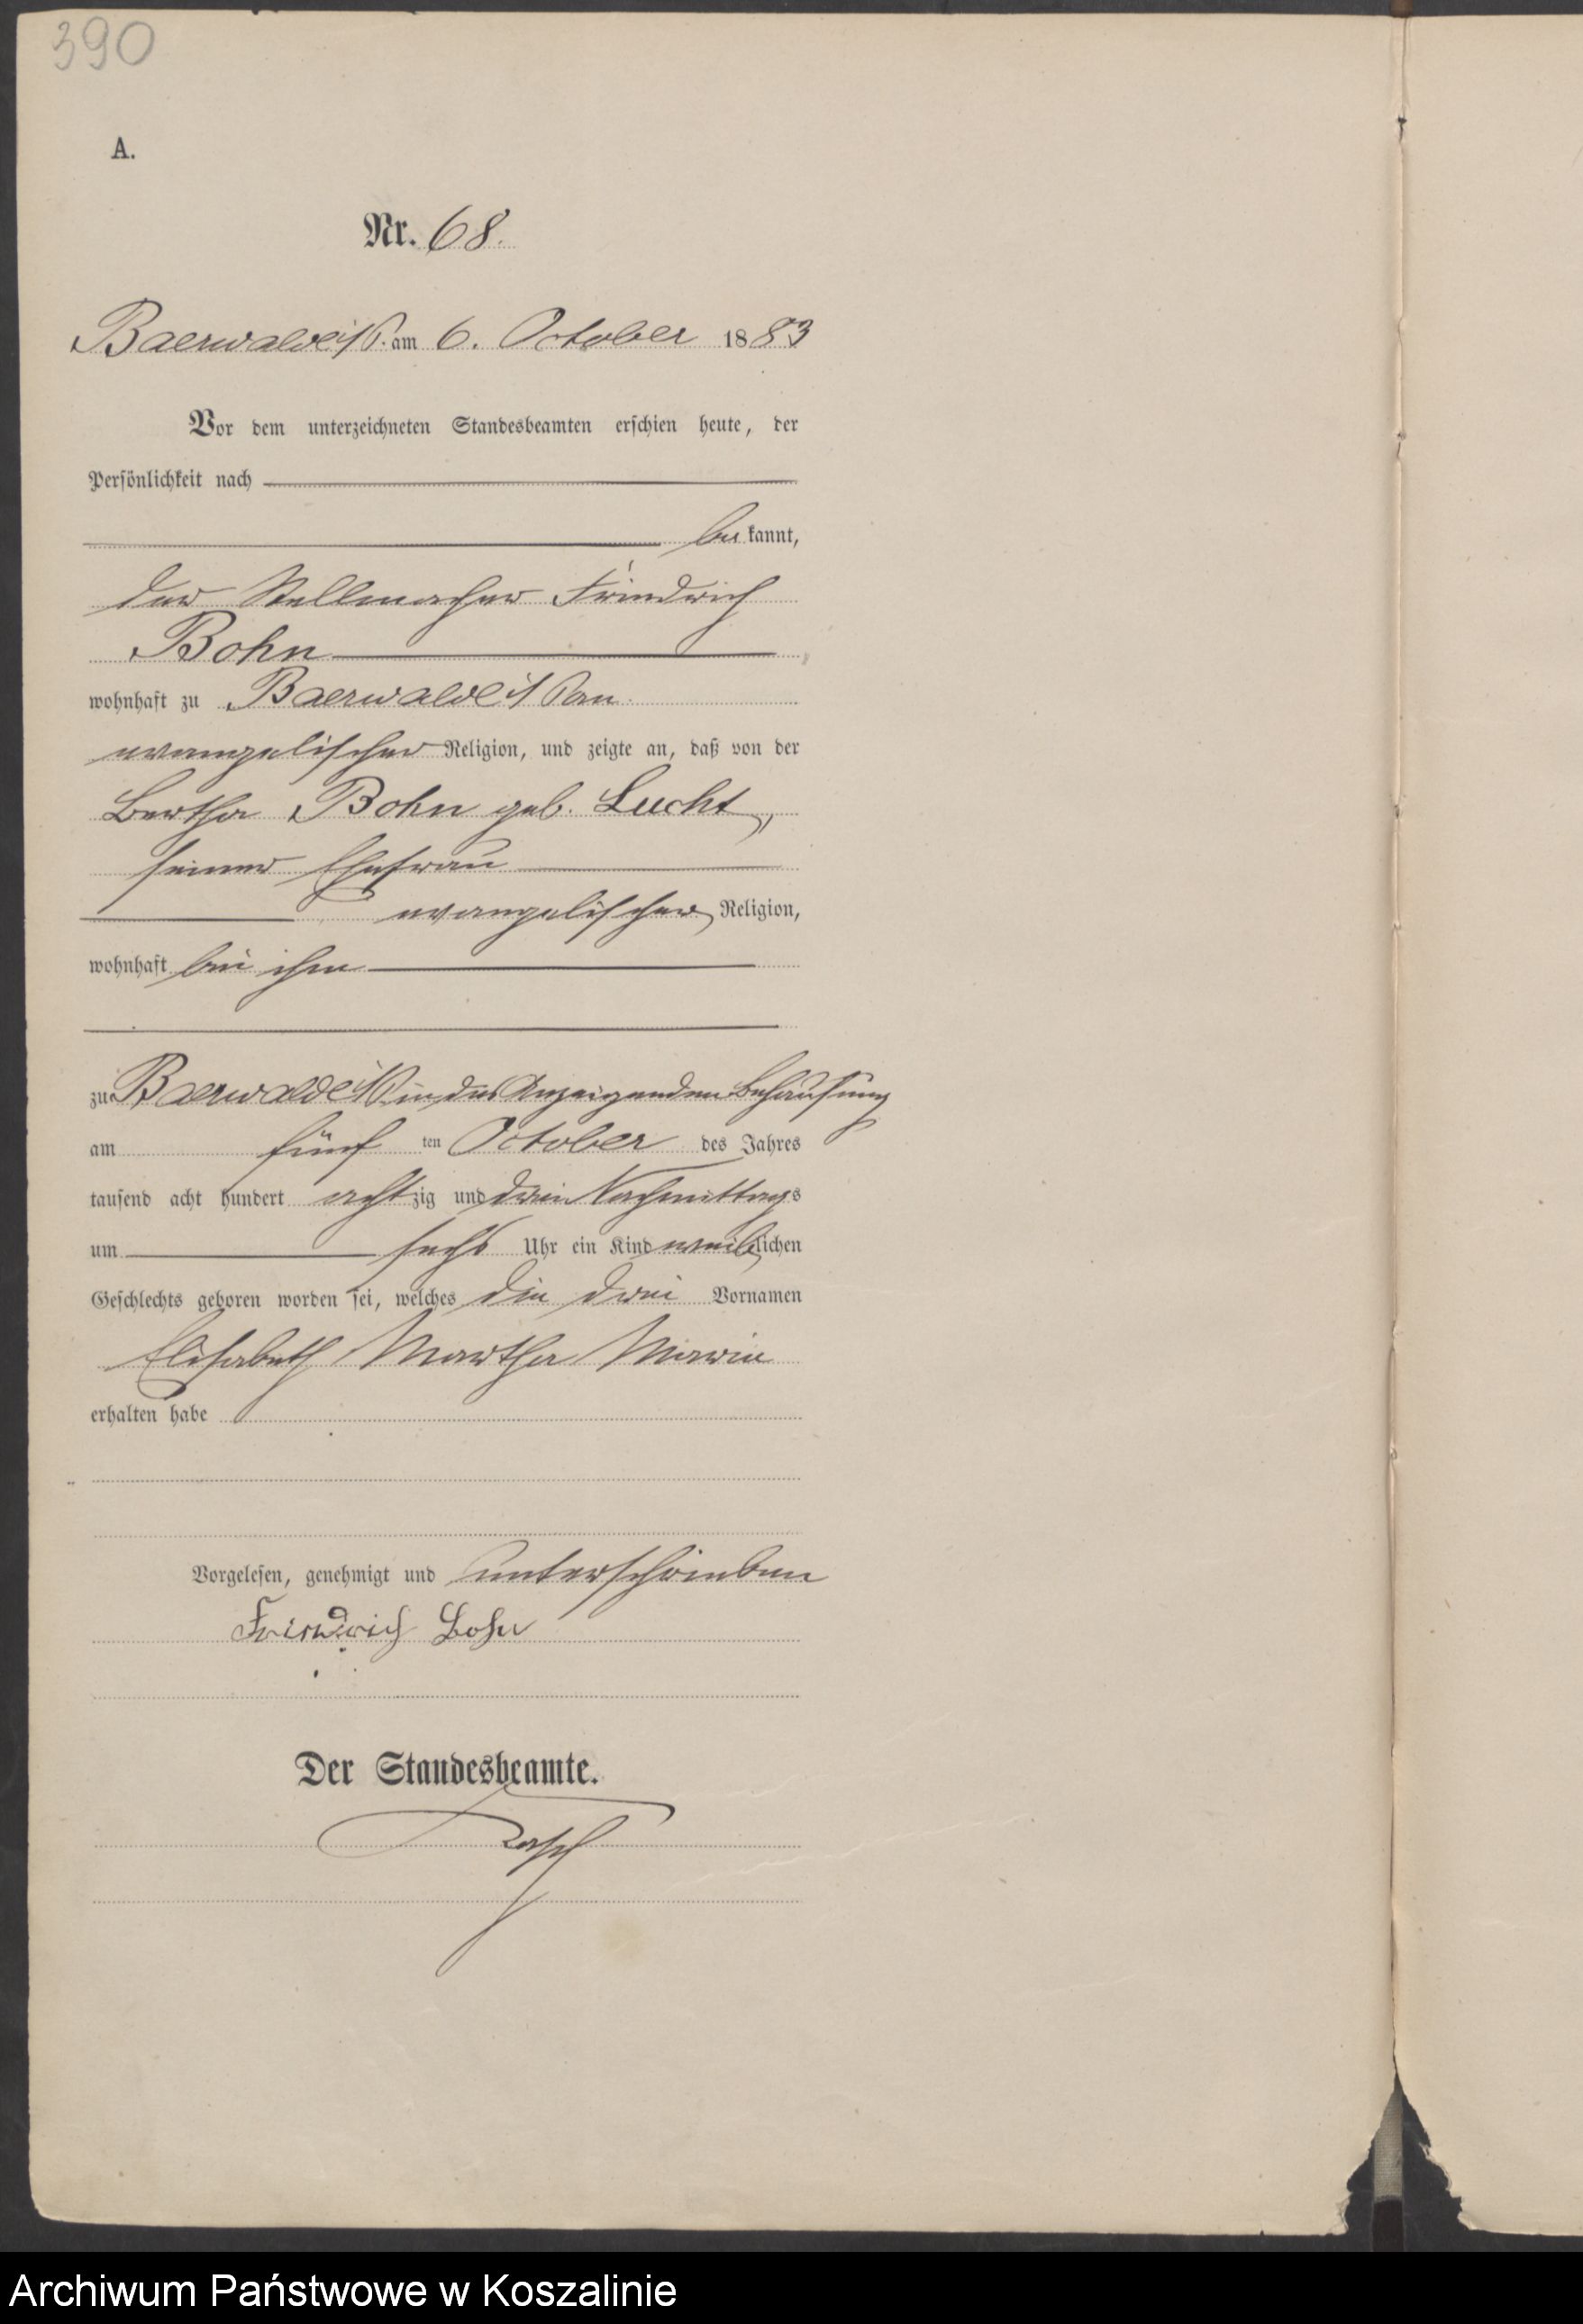 390
A.
Nr. 68.
Baerwalde i/P. am 6. October 1883
Vor dem unterzeichneten Standesbeamten erschien heute, der
Persönlichkeit nach
bekannt,
der Stellmacher Friedrich
Bohn
wohnhaft zu Baerwalde i/Pom.
evangelischer Religion, und zeigte an, daß von der
Bertha Bohn geb. Lucht,
seiner Ehefrau
evangelischer Religion,
wohnhaft bei ihm
zu Baerwalde i/P. in des Anzeigenden Behausung
am fünften October des Jahres
tausend acht hundert achtzig und drei Nachmittags
um sechs Uhr ein Kind weiblichen
Geschlechts geboren worden sei, welches die drei Vornamen
Elisabeth Martha Marie
erhalten habe
Vorgelesen, genehmigt und unterschrieben
Friedrich Bohn
Der Standesbeamte.
Archiwum Państwowe w Koszalinie